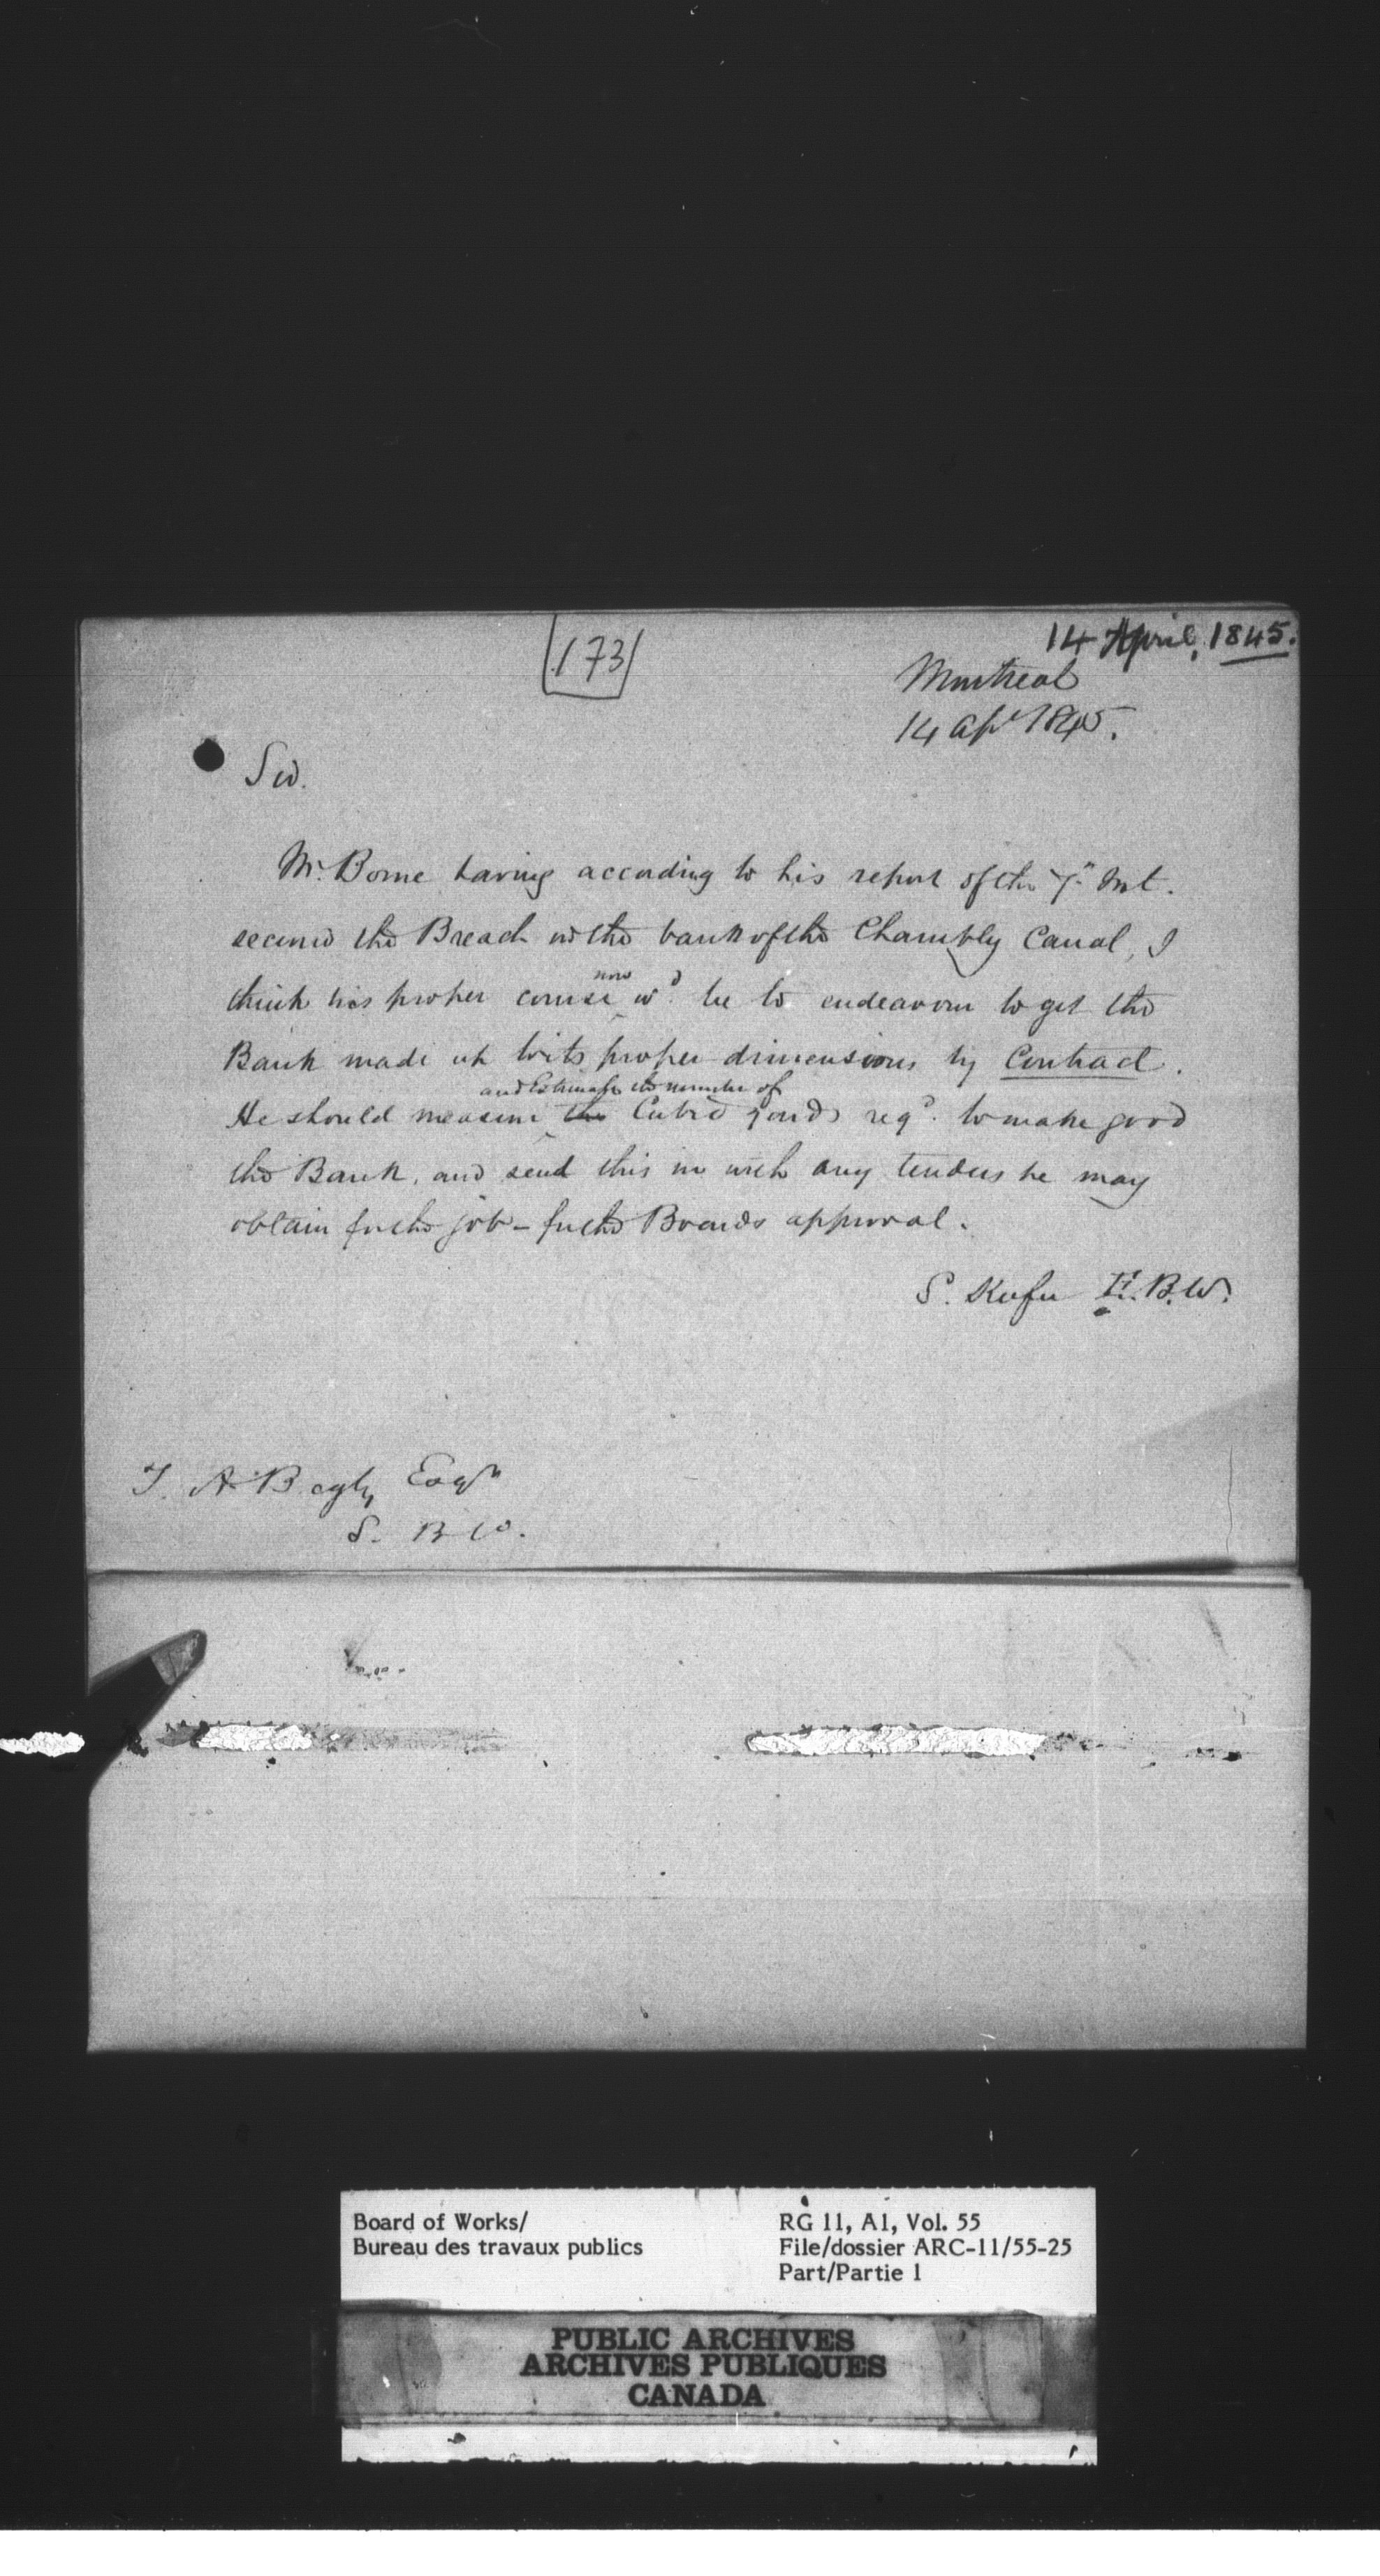 173
14 April, 1845.
Montreal
14 Apl 1845.
Sir.
Mr. Borne having according to his report of the 7th Inst.
secured the Breach in the bank of the Chambly Canal, I
think his proper course now wd. be to endeavour to get the
Bank made up to its proper dimensions by Contract.
and Estimate the number of
He should measure the Cubic yards reqd. to make good
the Bank, and send this in with any tenders he may
obtain for the job - for the Boards approval.
S. Keefer E. B.W.
T. A Begly Esqr
S. B W.
Board of Works/
Bureau des travaux publics
RG 11, A1, Vol. 55
File/dossier ARC-11/55-25
Part/Partie 1
PUBLIC ARCHIVES
ARCHIVES PUBLIQUES
CANADA